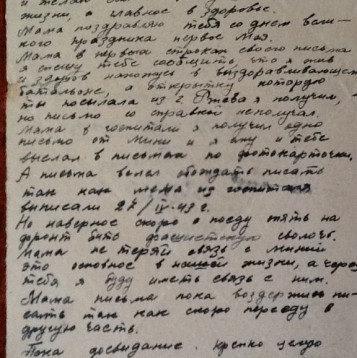 и желаю
жизни а главное в Здоровье.
Мама поздравляю тебя со днем вели-
кого праздника первое мая.
Мама в первых строках своего письма
я спешу тебе сообщить, что я жив
и здоров нахожусь в выздоравливающем
батальоне, а открытку которую
ты посылала из г. Ржева я получил,
но письмо со справкой неполучал.
Мама в госпитали я получил одно
письмо от Мини и я ему и тебе
выслал в письмах по фотокарточки.
А письма велел обождать писать
так как меня из госпиталя
выписали 27/IV-43 г.
Но наверное скоро я поеду опять на
фронт бить фашистскую сволочь.
Мама не теряй связь с Миней
это основное в нашей жизни, а через
тебя я буду иметь связь с ним.
Мама письма пока воздержись пи-
сать так как скоро переведу в
другую часть.
Пока досвидание. Крепко целую